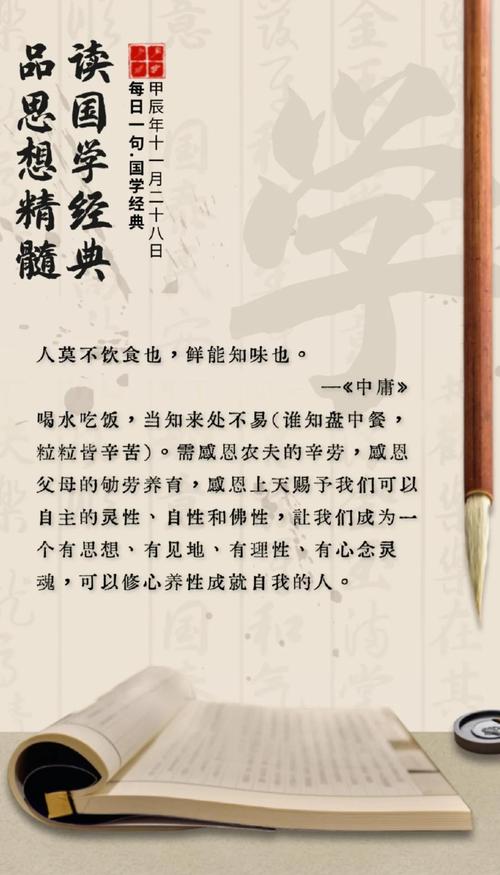 读国学经典
品思想精髓
甲辰年十一月二十八日
每日一句·国学经典
学
人莫不饮食也，鲜能知味也。
—《中庸》
喝水吃饭，当知来处不易(谁知盘中餐，
粒粒皆辛苦)。需感恩农夫的辛劳，感恩
父母的劬劳养育，感恩上天赐予我们可以
自主的灵性、自性和佛性，讓我们成为一
个有思想、有见地、有理性、有心念灵
魂，可以修心养性成就自我的人。